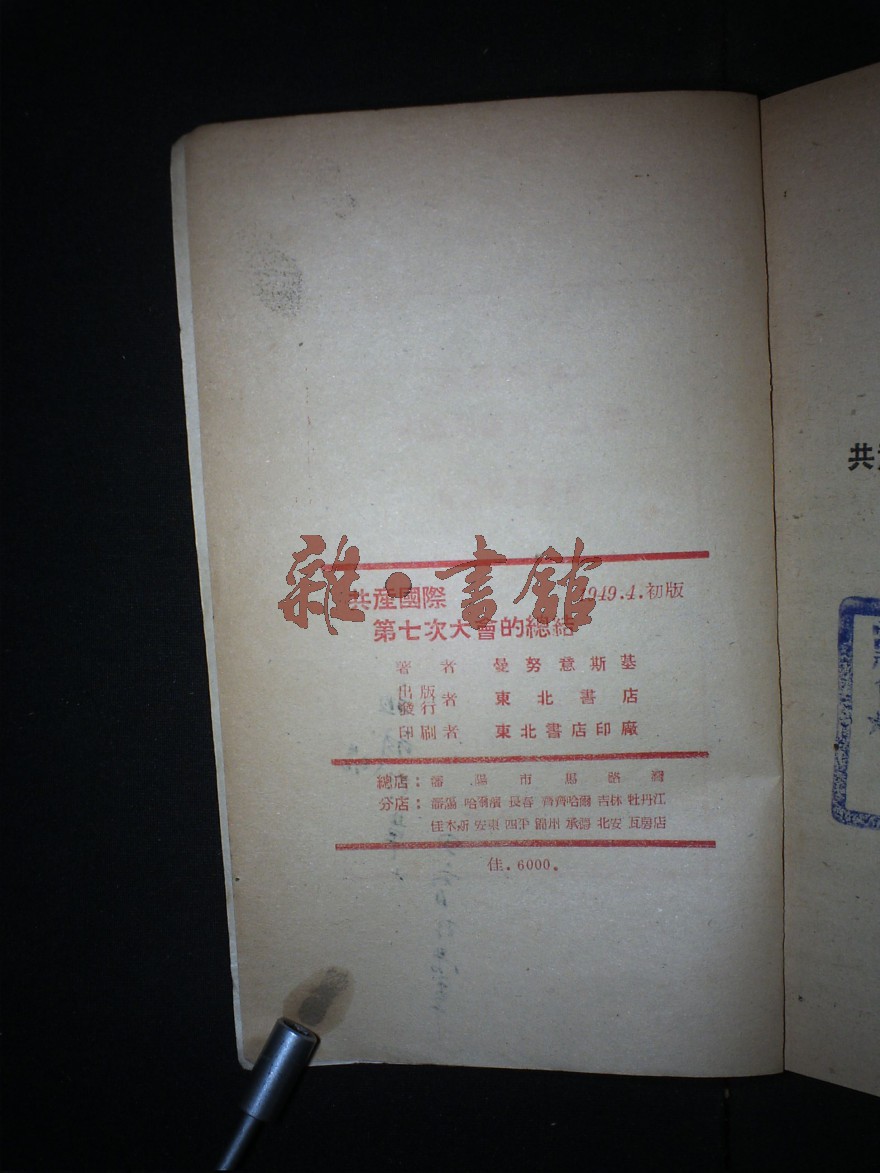 雜·書館
共產國際 1949.4.初版
第七次大會的總結
著者 曼努意斯基
出版
發行者 東北書店
印刷者 東北書店印廠
總店：瀋陽市馬路灣
分店：瀋陽 哈爾濱 長春 齊齊哈爾 吉林 牡丹江
佳木斯 安東 四平 錦州 承德 北安 瓦房店
佳.6000.
共